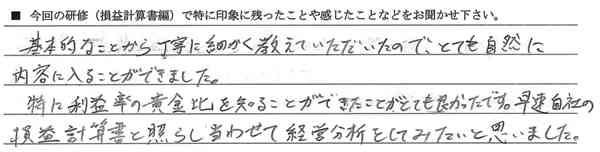 ■ 今回の研修（損益計算書編）で特に印象に残ったことや感じたことなどをお聞かせ下さい。
基本的なことから丁寧に細かく教えていただいたので、とても自然に
内容に入ることができました。
特に利益率の黄金比を知ることができたことがとても良かったです。早速自社の
損益計算書と照らし当わせて経営分析をしてみたいと思いました。